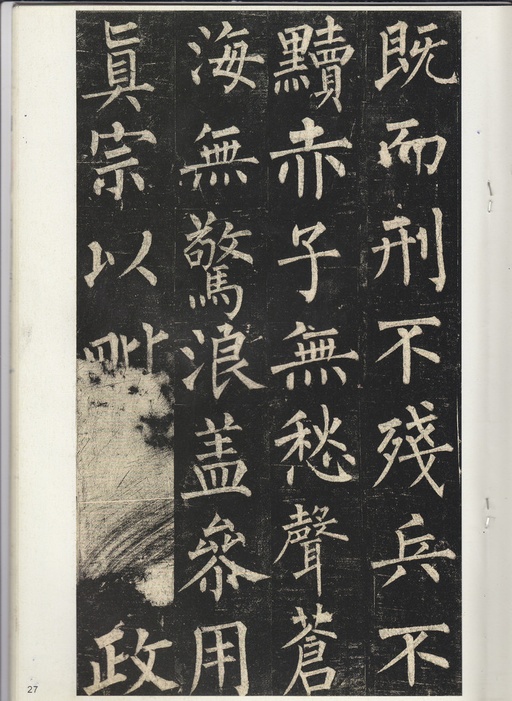 既而刑不殘兵不
黷赤子無愁聲蒼
海無驚浪盖㕘用
眞宗以毗
政
27